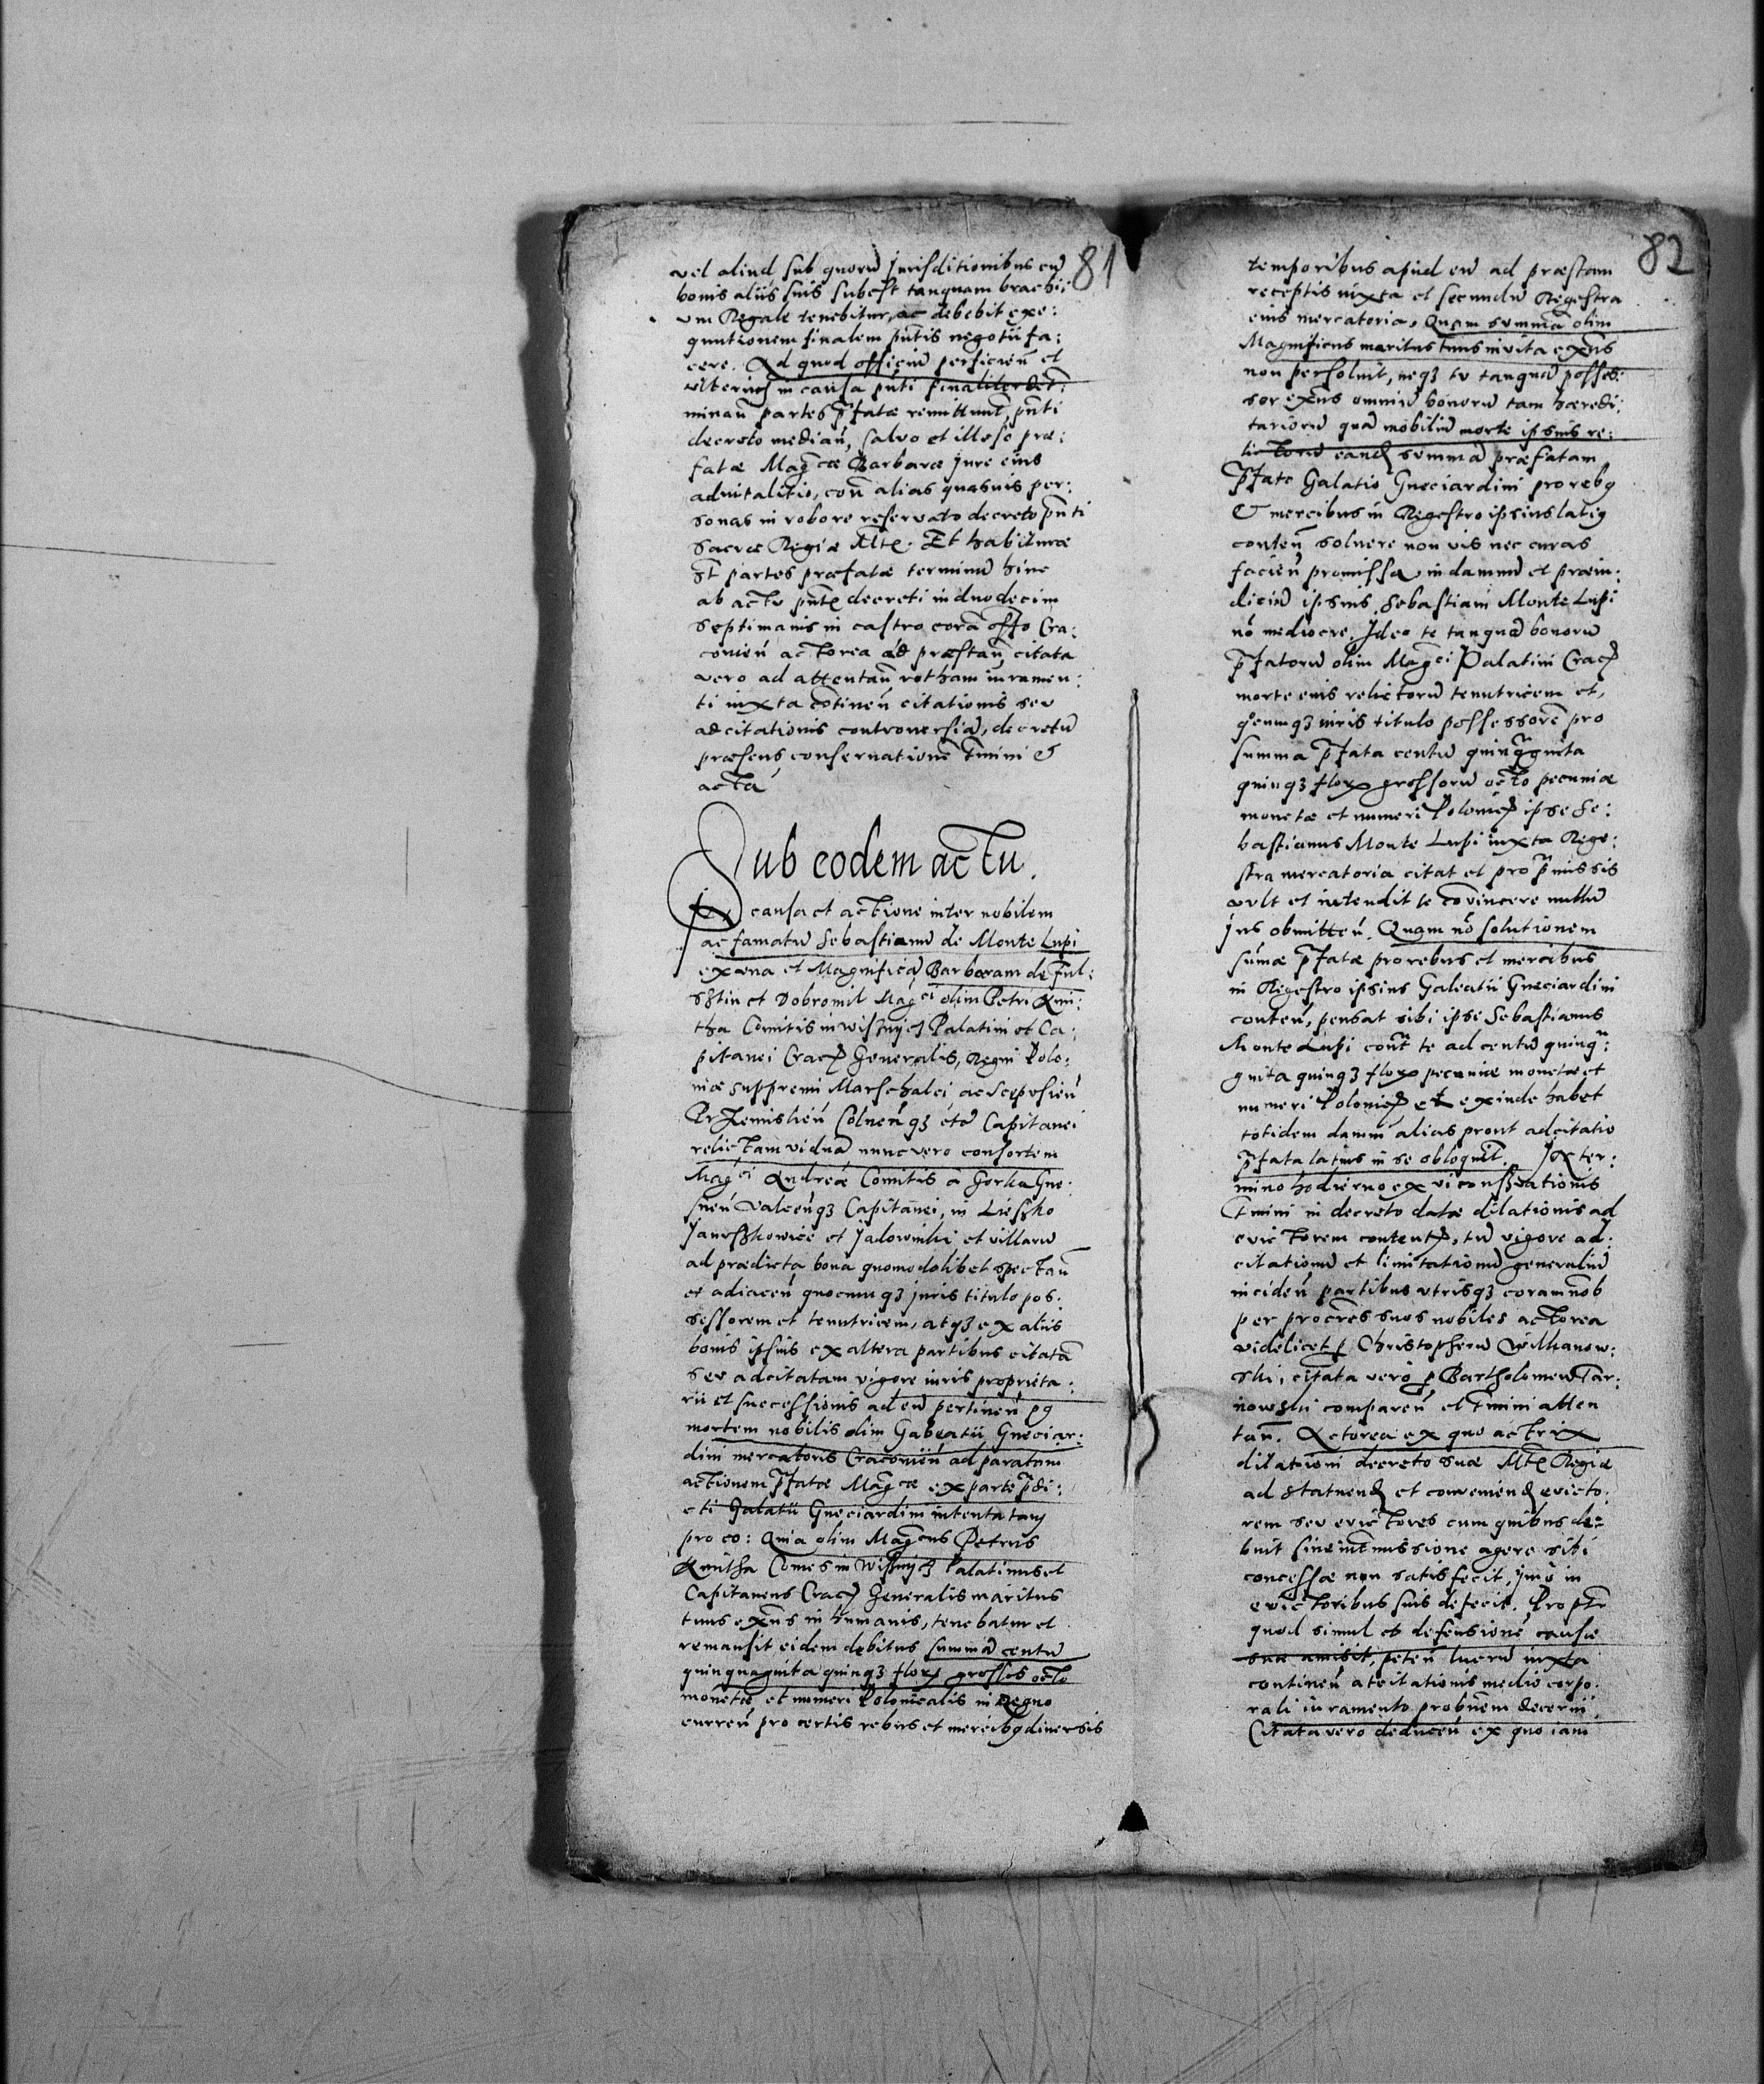 81
vel aliud sub quorū Jurisditionibus cū
bonis aliis suis subest tanquam brachi:
um Regale tenebitur, ac debebit exe:
quutionem finalem pn̄tis negotii fa:
cere. Ad quod officiū perficien̄ et
ulterius in causa pn̄ti finaliter det̄:
minan̄ partes p̄fatæ remittunt̄, pn̄ti
decreto median̄, salvo et illeso præ:
fatæ Maḡcæ Barbaræ jure eius
advitalitio, con̄ alias quasuis per:
sonas in robore reservato decreto pn̄ti
Sacræ Regiæ Mtis. Et habituræ
st̄ partes præfatæ terminū hinc
ab actu pn̄tis decreti in duodecim
septimanis in castro corā offo Cra:
covien̄ actorea ad præstan̄ citata
vero ad attentan̄ rotham iuramen:
ti iuxta cōtinen̄ citationis seu
adcitationis controversiā, decretū
præsens conservationē t̄mini &
acta
Sub eodem actu.
In causa et actione inter nobilem
ac famatū Sebastianū de Monte Lupi
ex una et Magnificā Barbaram de Ful:
sstin et Dobromil Maḡci olim Petri Kmi:
tha Comitis in Wissnycz Palatini et Ca:
pitanei Crac̄ Generalis, Regni Polo:
niæ Suppremi Marschalci ac Scepusien̄
Przemislien̄ Colnen̄qз etc̄ Capitanei
relictam viduā nunc vero consortem
Maḡci Andreæ Comitis a Gorka Gne:
snen̄ Valcen̄qз Capitanei, in Liessko
Janusskowice et Jadowniki et villarū
ad prædicta bona quomodolibet spectan̄
et adiacen̄ quocunqз juris titulo pos:
sessorem et tenutricem, atqз ex aliis
bonis ipsius ex altera partibus citatā
seu adcitatam vigore iuris proprieta:
rii et successionis ad eū pertinen̄ pꝯ
mortem nobilis olim Galeatii Gueciar:
dini mercatoris Cracovien̄ ad paratam
actionem p̄fatæ Maḡcæ ex parte p̄di:
cti Galatii Gueciardini intentatam
pro eo: Quia olim Maḡcus Petrus
Kmitha Comes in Wissnycz Palatinus et
Capitaneus Crac̄ Generalis maritus
tuus exn̄s in humanis, tenebatur et
remansit eidem debitus summā centū
quinquaginta quinqз flor̄ grossis octo
monetæ et numeri Polonicalis in Regno
curren̄ pro certis rebus et mercibꝯ diversis
82
temporibus apud eū ad præstam
receptis iuxta et secundū Regestra
eius mercatoria, Quam summā olim
Magnificus maritus tuus in vita exn̄s
non persoluit, neqз tu tanquā posses:
sor exn̄s omniū bonorū tam hæredi:
tariorū quā mobiliū morte ipsius re:
lictorū eand̄ summā præfatam
p̄fato Galatio Gueciardini pro rebꝯ
& mercibus in Regestro ipsius latiꝯ
conten̄ soluere non vis nec curas
facien̄ promissa in damnū et præiu:
diciū ipsius Sebastiani Monte Lupi
nō mediocre. Ideo te tanquā bonorū
p̄fatorū olim Maḡci Palatini Crac̄
morte euis relictorū tenutricem et,
q̄cunqз iuris titulo possessorē pro
summa p̄fata centū quinq̄ginta
quinqз flor̄ grossorū octo pecuniæ
monetæ et numeri Polonic̄ ipse Se:
bastianus Monte Lupi iuxta Rege:
stra mercatoria citat et pro p̄missis
vult et intendit te cōvincere nullū
jus obmitten̄. Quam nō solutionem
sūmæ p̄fatæ pro rebus et mercibus
in Regestro ipsius Galeatii Gueciardini
conten̄, pensat sibi ipse Sebastianus
Monte Lupi cont̄ te ad centū quinq̄:
ginta quinqз flor̄ pecuniæ monetæ et
numeri Polonic̄ et exinde habet
totidem damni alias prout adcitatio
p̄fata latius in se obloquit̄. In ter:
mino hodierno ex vi consv̄ationis
t̄mini in decreto datæ dilationis ad
evictorem content̄, tū vigore ad:
citationū et limitationū generaliū
inciden̄ partibus utrisqз coram nob
per procr̄es suos nobiles actorea
videlicet p̱ Christopherū Wilkanow:
ski, citata vero p̱ Bartholomeū Tar:
nowski comparen̄ et t̄mini atten
tan̄. Actorea ex quo actrix
dilationi decreto suæ Mtis Regiæ
ad statuend̄ et conveniend̄ evicto:
rem seu evictores cum quibus de:
buit sine int̄missione agere sibi
concessæ non satisfecit, ymo in
evictoribus suis defecit. Propt̄r
quod simul et defensionē causæ
suæ amisit, peten̄ lucrū iuxta
continen̄ adcitationis medio corpo:
rali iuramento probn̄em decerni
Citata vero deducen̄ ex quo iam